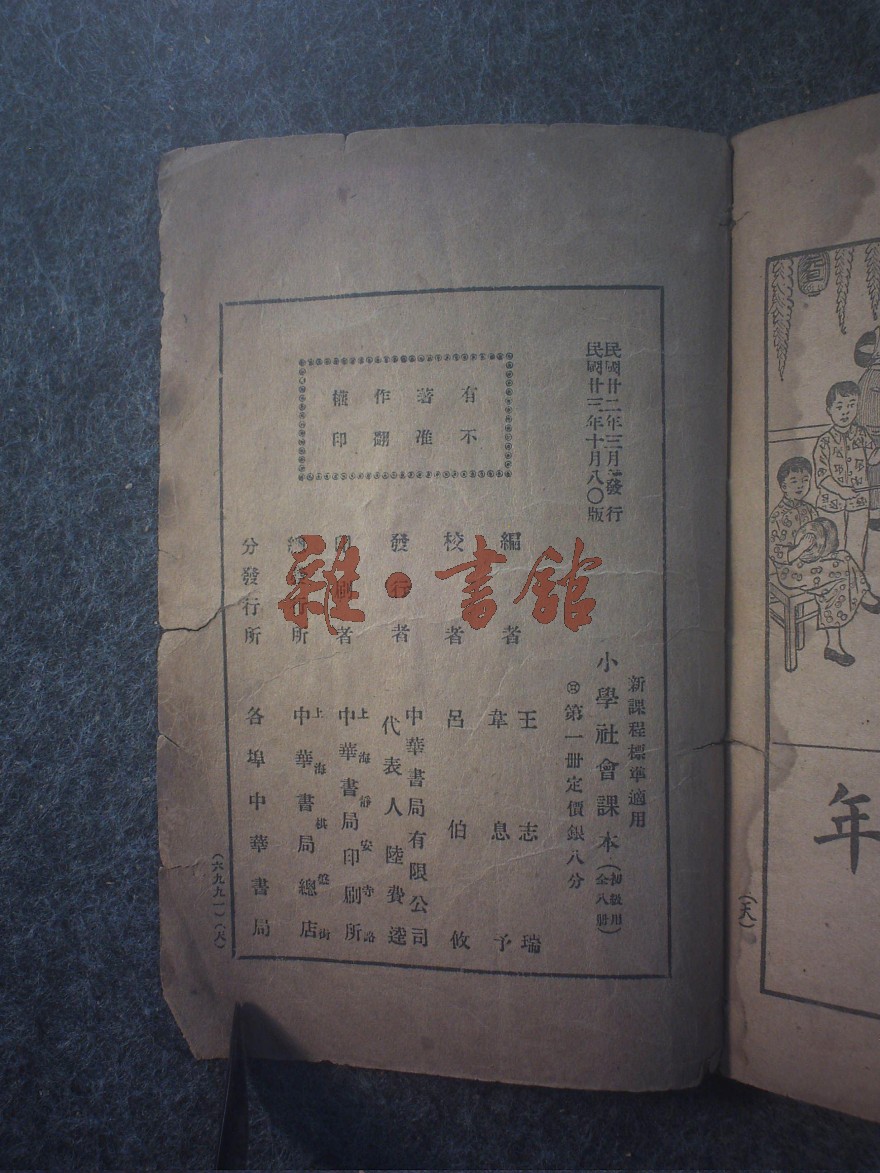 民國廿二年三月發行
民國廿三年十月八〇版
有不
著准
作翻
權印
新課程標準適用
小學社會課本（初級用全八册）
第一册定價銀八分
編者 王志瑞
韋息予
校者 呂伯攸
發行者 中華書局有限公司
代表人陸費逵
印刷者 上海靜安寺路
中華書局印刷所
總發行所 上海棋盤街
中華書局總店
分發行所 各埠中華書局
（六九九一）（大）
雜·書館
年